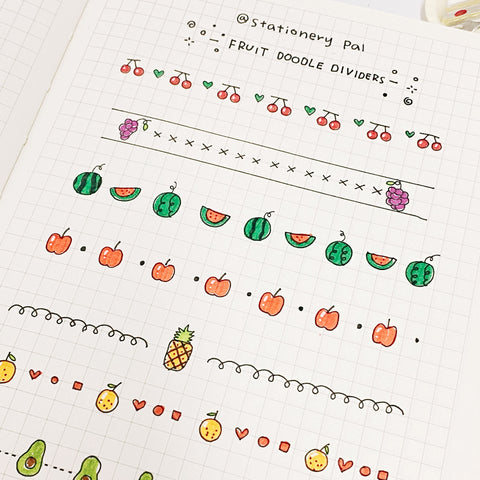 @Stationery Pal
FRUIT DOODLE DIVIDERS